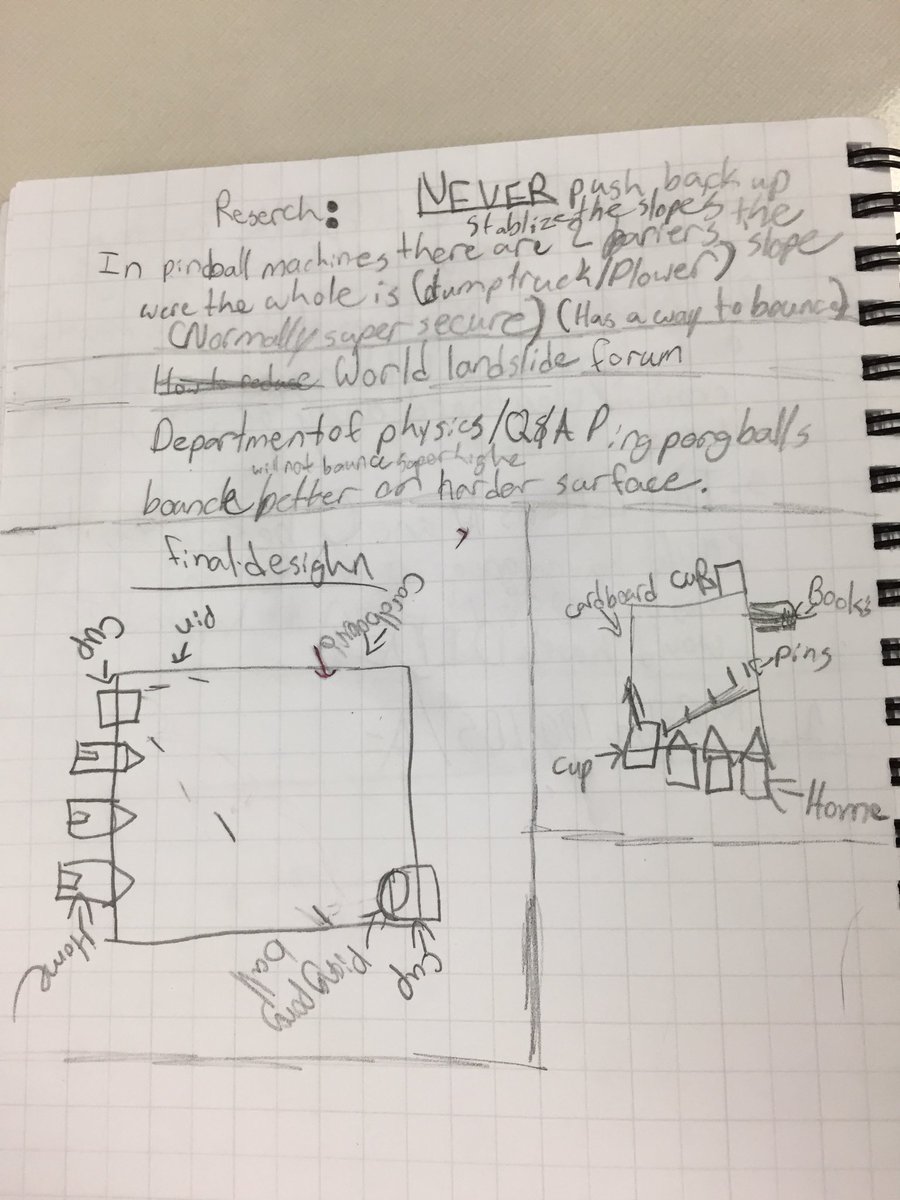 Reserch: NEVER push back up
Stablize the slopes the
In pindball machines there are 2 pariers slope
were the whole is (dumptruck/Plower)
(Normally super secure) (Has a way to bounce)
How to reduce World landslide forum
Department of physics/Q&A Ping pong balls
will not bounce super highe
bounce better on harder surface.
final desighn
Cup
pin
Cardboard
Home
Ping pong
ball
Cup
cardboard
cups
Books
Ping
Cup
Home